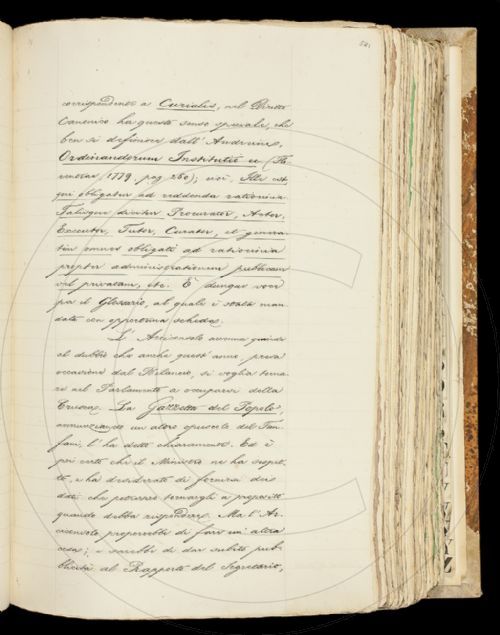 corrispondente a Curialis, nel Diritto
Canonico ha questo senso speciale, che
ben si definisce dall'
Ordinandorum Institutio ec
1779, pag. 260); ivi. Ille est
qui obligatur ad reddenda rationivia.
Talisque dicitur Procurator, Actor,
Executor, Tutor, Curator, et genera-
tim omnes obligati ad ratiocinia
propter administrationem publicam
vel privatam, etc. È dunque voce
per il Glossario, al quale è stata man-
data con opportuna scheda.
L'Arciconsolo accenna quindi
al dubbio che anche quest'anno, presa
occasione dal Bilancio, si voglia torna-
re nel Parlamento a occuparsi della
Crusca. La Gazzetta del Popolo,
annunziando un altro opuscolo del Fan-
fani, l'ha detto chiaramente. Ed è
poi certo che il Ministro ne ha sospet-
to, e ha desiderato di fornirsi dei
dati che potessero tornargli a proposito
quando debba rispondere. Ma l'Ar-
ciconsolo proporrebbe di fare un'altra
cosa; e sarebbe di dar subito pub-
blicità al Rapporto del Segretario,